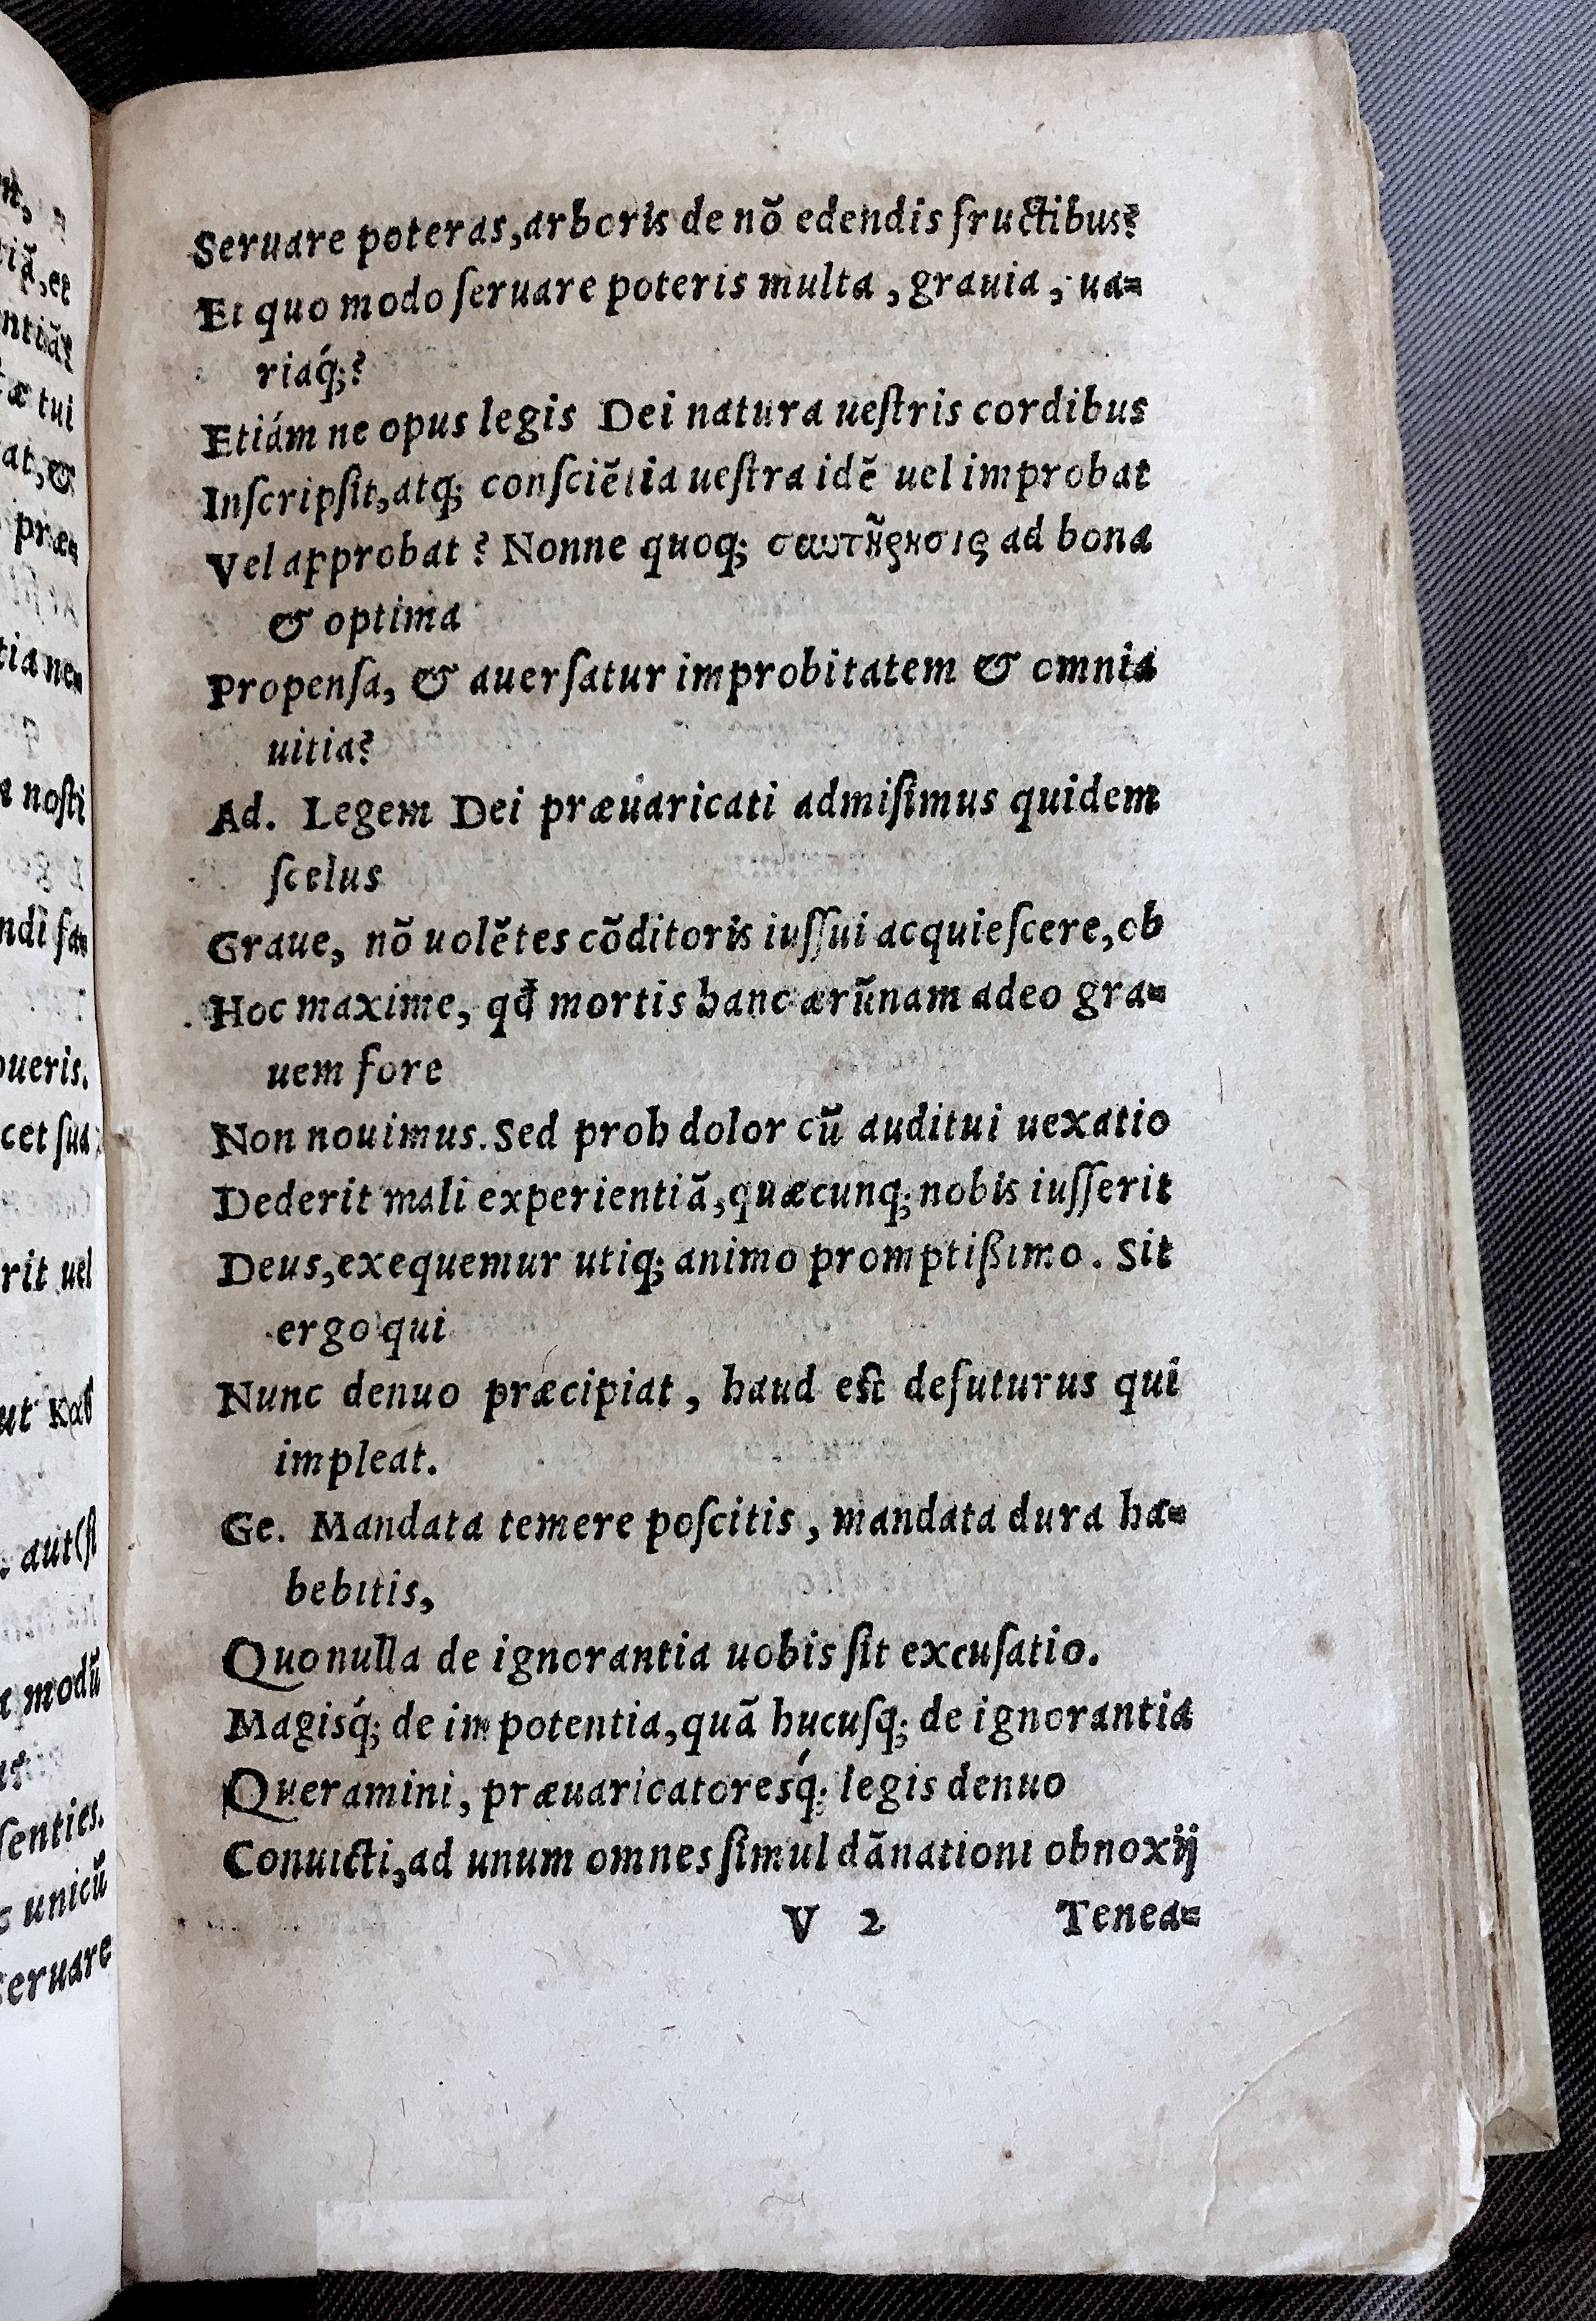 Seruare poteras,arboris de nõ edendis fructibus?
Et quo modo ſeruare poteris multa , grauia , ua=
riaq́;?
Etiám ne opus legis Dei natura ueſtris cordibus
Inſcripſit,atq; conſciẽtia ueſtra idẽ uel improbat
Vel approbat ? Nonne quoq; σαυτῆρησις ad bona
& optima
Propenſa, & auerſatur improbitatem & omnia
uitia?
Ad. Legem Dei præuaricati admiſimus quidem
ſcelus
Graue, nõ uolẽtes cõditoris iuſſui acquieſcere,ob
Hoc maxime, qđ mortis hanc ærũnam adeo gra=
uem fore
Non nouimus.Sed proh dolor cũ auditui uexatio
Dederit mali experientiã,quæcunq; nobis iuſſerit
Deus,exequemur utiq; animo promptißimo . Sit
ergo qui
Nunc denuo præcipiat , haud eſt defuturus qui
impleat.
Ge. Mandata temere poſcitis , mandata dura ha=
bebitis,
Quo nulla de ignorantia uobis ſit excuſatio.
Magisq́; de impotentia,quã hucuſq; de ignorantia
Queramini, præuaricatoresq́; legis denuo
Conuicti,ad unum omnes ſimul dãnationi obnoxij
V 2 Tenea=